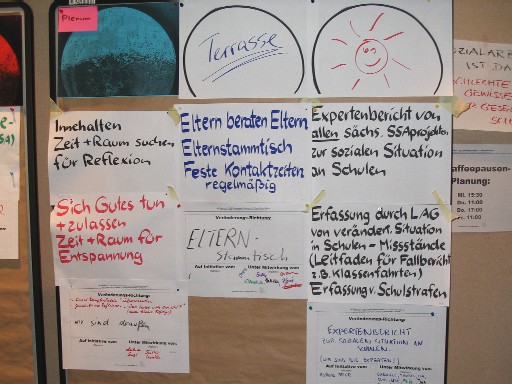 Plenum
Terrasse
Innehalten
Zeit + Raum suchen
für Reflexion
Sich Gutes tun
+ zulassen
Zeit + Raum für
Entspannung
Veränderungs-Richtung:
wir sind draußen
Auf Initiative vom:
Unter Mitwirkung von:
Eltern beraten Eltern
Elternstammtisch
Feste Kontaktzeiten
regelmäßig
Veränderungs-Richtung
ELTERN-
stammtisch
Auf Initiative vom:
Unter Mitwirkung von:
Expertenbericht von
allen sächs. SSAprojekten
zur sozialen Situation
an Schulen
Erfassung durch LAG
von veränder. Situation
in Schulen - Missstände
(Leitfaden für Fallbericht
z.B. Klassenfahrten)
Erfassung v. Schulstrafen
Veränderungs-Richtung:
EXPERTENBERICHT
ZUR SOZIALEN SITUATION AN
SCHULEN.
(WIR SIND DIE EXPERTEN!)
Auf Initiative vom:
Unter Mitwirkung von:
SOZIALARB
IST DA
SCHLECHTE
GEWISSEN
Kaffeepausen-
Planung:
Mi. 15:30
Do. 11:00
Do. 17:00
Fr. 11:00